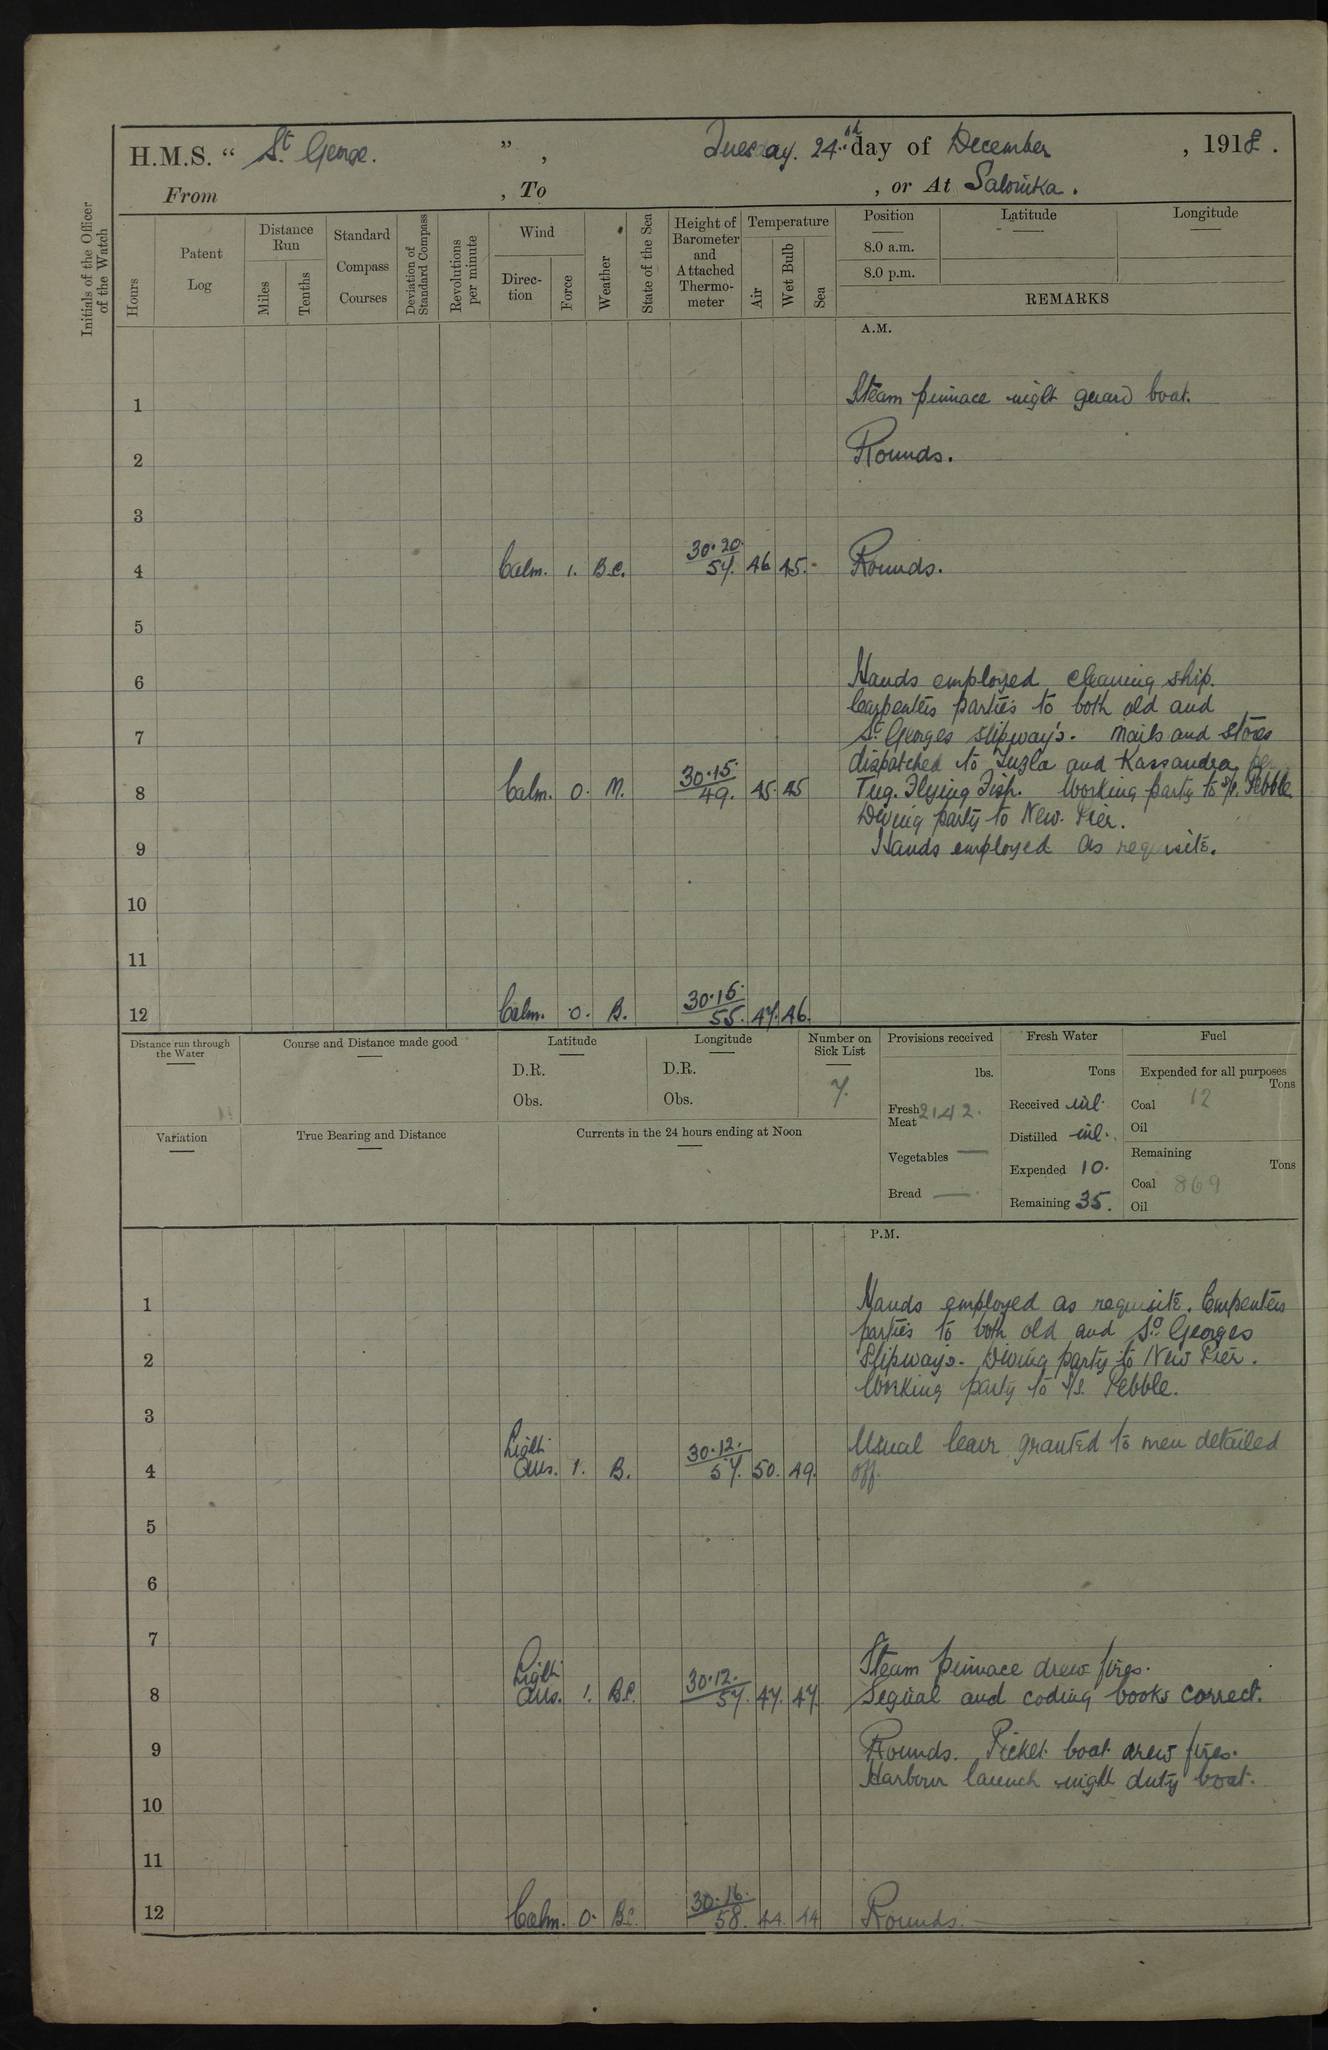 H.M.S. “ St George. ” , Tuesday. 24th day of December , 1918 .
From , To , or At Salonika .
Initials of the Officer of the Watch
Hours
Patent Log
Distance Run
Miles
Tenths
Standard Compass Courses
Deviation of Standard Compass
Revolutions per minute
Wind
Direc- tion
Force
Weather
State of the Sea
Height of Barometer and Attached Thermo- meter
Temperature
Air
Wet Bulb
Sea
Position
8.0 a.m.
8.0 p.m.
Latitude
Longitude
REMARKS
A.M.
1 Steam pinnace night guard boat.
2 Rounds.
3
4 Calm. 1. B.C. 30.20. 57. 46 45. Rounds.
5
6 Hands employed cleaning ship.
Carpenters parties to both old and
7 St Georges slipway's. Mails and stores
dispatched to Tuzla and Kassandra per
8 Calm. 0. M. 30.15. 49. 45. 45 Tug. Flying Fish. Working party to S/S. Pebble
Diving party to New. Pier.
9 Hands employed as requisite.
10
11
12 Calm. 0. B. 30.15. 55. 47. 46.
Distance run through the Water
Course and Distance made good
Latitude
D.R.
Obs.
Longitude
D.R.
Obs.
Number on Sick List
7.
Provisions received
lbs.
Fresh Meat 2142.
Vegetables —
Bread —
Fresh Water
Tons
Received nil.
Distilled nil.
Expended 10.
Remaining 35.
Fuel
Expended for all purposes
Tons
Coal 12
Oil
Remaining
Tons
Coal 869
Oil
Variation
True Bearing and Distance
Currents in the 24 hours ending at Noon
P.M.
1 Hands employed as requisite. Carpenters
parties to both old and St. Georges
2 Slipways. Diving party to New Pier.
Working party to S/S. Pebble.
3
Usual leave granted to men detailed
4 Light Airs. 1. B. 30.12. 57. 50. 49. off.
5
6
7
Steam pinnace drew fires.
8 Light Airs. 1. B.C. 30.12. 57. 47. 47. Signal and coding books correct.
9 Rounds. Picket boat drew fires.
Harbour launch night duty boat.
10
11
12 Calm. 0. B.C. 30.16. 58. 44. 44 Rounds.